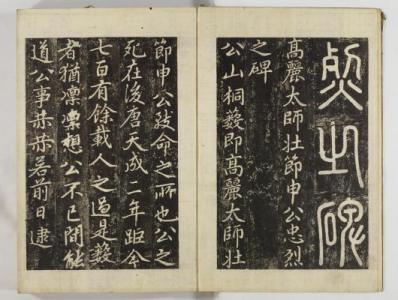 烈之碑
高麗太師壯節申公忠烈
之碑
公山桐藪即高麗太師壯
節申公致命之所也公之
死在後唐天成二年距今
七百有餘載人之過是藪
者猶凜凜想公不已間能
道公事赫赫若前日逮